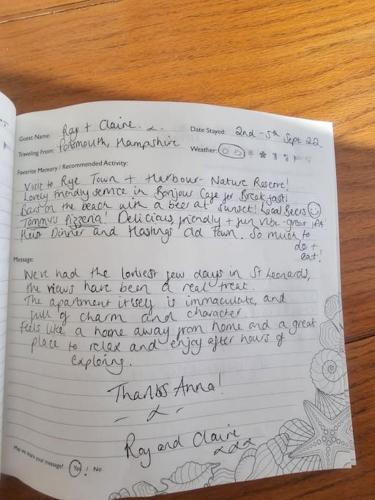 Guest Name: Ray + Claire. x
Date Stayed: 2nd - 5th Sept 22
Traveling From: Portsmouth, Hampshire
Weather:
Favorite Memory / Recommended Activity:
Visit to Rye Town + Harbour - Nature Reserve!
Lovely friendly service in Bonjour Cafe for Breakfast!
on the beach with a beer at sunset! Local Beers
Tommy's Pizzeria! Delicious, friendly + fun vibe - great IPA
Dinner and Hastings old town. So much to
do +
eat!
Message:
We've had the loveliest few days in St Leonards,
the views have been a real treat.
The apartment itself is immaculate, and
full of charm and character.
Feels like a home away from home and a great
place to relax and enjoy after hours of
exploring.
Thanks Anna!
x
Ray and Claire
xxx
May we share your message? Yes! No